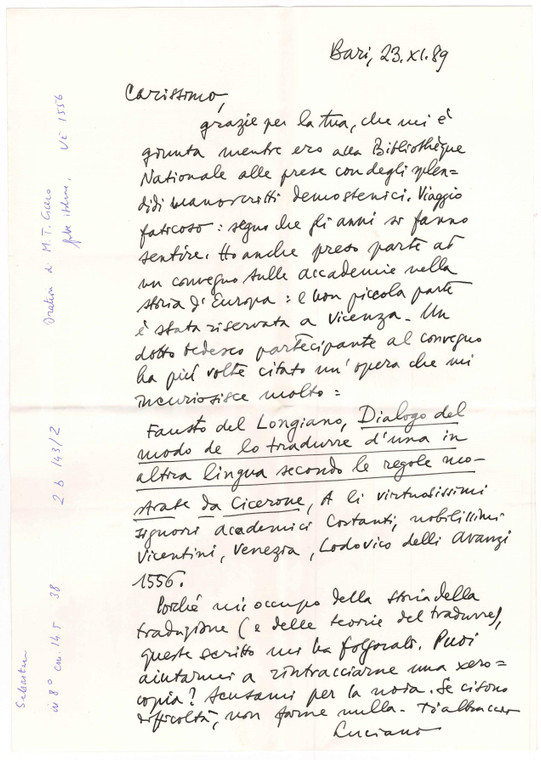 Bari, 23.XI.89
Carissimo,
grazie per la tua, che mi è
giunta mentre ero alla Bibliothèque
Nationale alle prese con degli splen=
didi manoscritti demostenici. Viaggio
faticoso: segno che gli anni si fanno
sentire. Ho anche preso parte ad
un convegno sulle accademie nella
storia d'Europa: e non piccola parte
è stata riservata a Vicenza. Un
dotto tedesco partecipante al convegno
ha più volte citato un'opera che mi
incuriosisce molto:
Fausto del Longiano, Dialogo del
modo de lo tradurre d'una in
altra lingua secondo le regole mo=
strate da Cicerone, A li virtuosissimi
signori academici Costanti, nobilissimi
Vicentini, Venezia, Lodovico delli Avanzi
1556.
Poiché mi occupo della storia della
traduzione (e delle teorie del tradurre),
questo scritto mi ha folgorato. Puoi
aiutarmi a rintracciarne una xero=
copia? Scusami per la noia. Se ci sono
difficoltà, non farne nulla. Ti abbraccio
Luciano
M. T. Cicero
Ve 1556
2 b 143/2
in 8° cm. 16.5 38